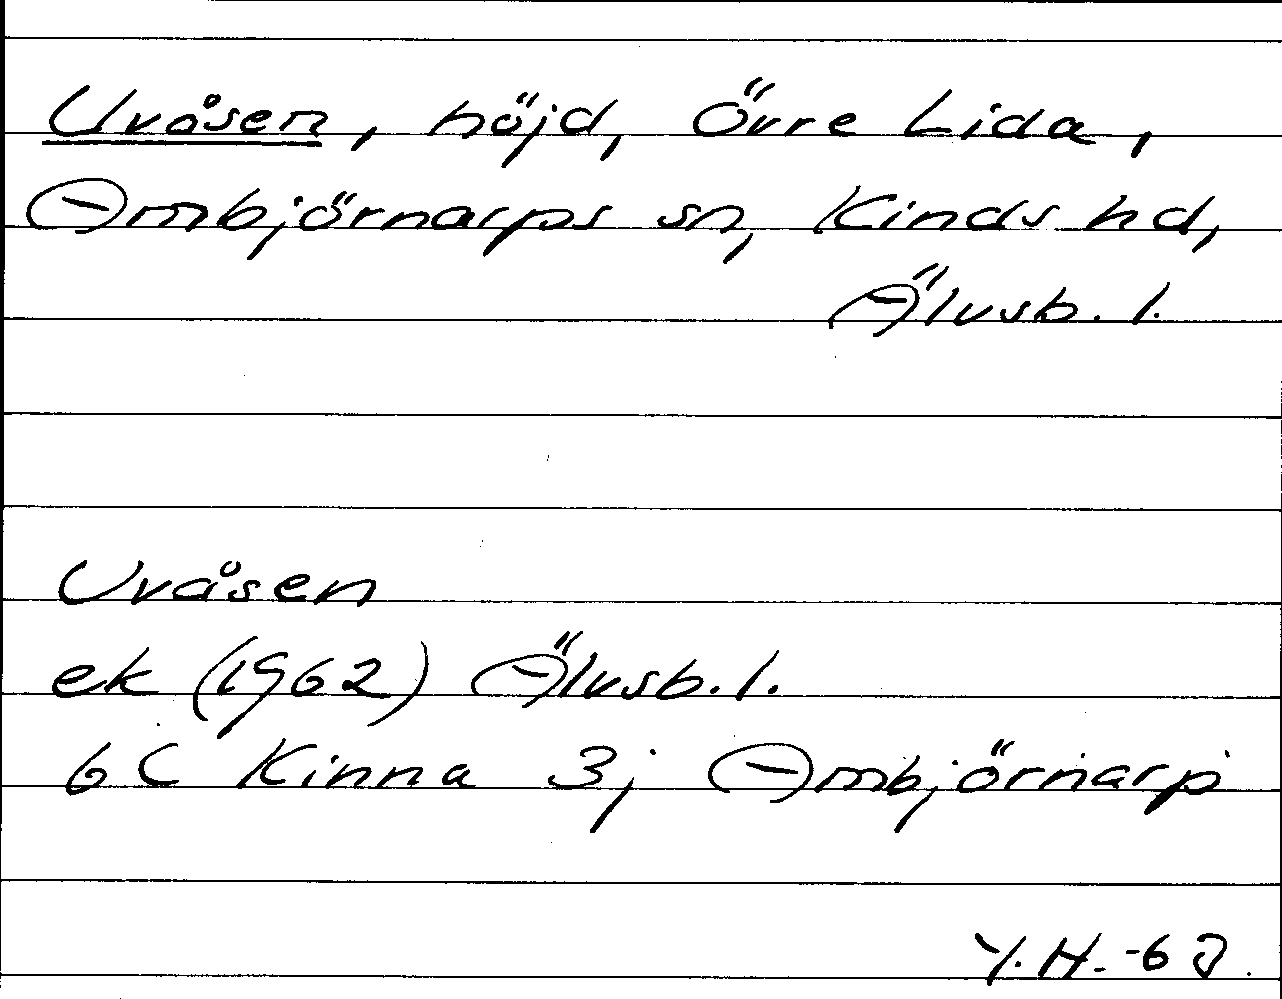 Uvåsen, höjd, Övre Lida,
Ambjörnarps sn, Kinds hd,
Älvsb. l.
Uvåsen
ek (1962) Älvsb. l.
6 C Kinna 3j Ambjörnarp
Y. H. -63.